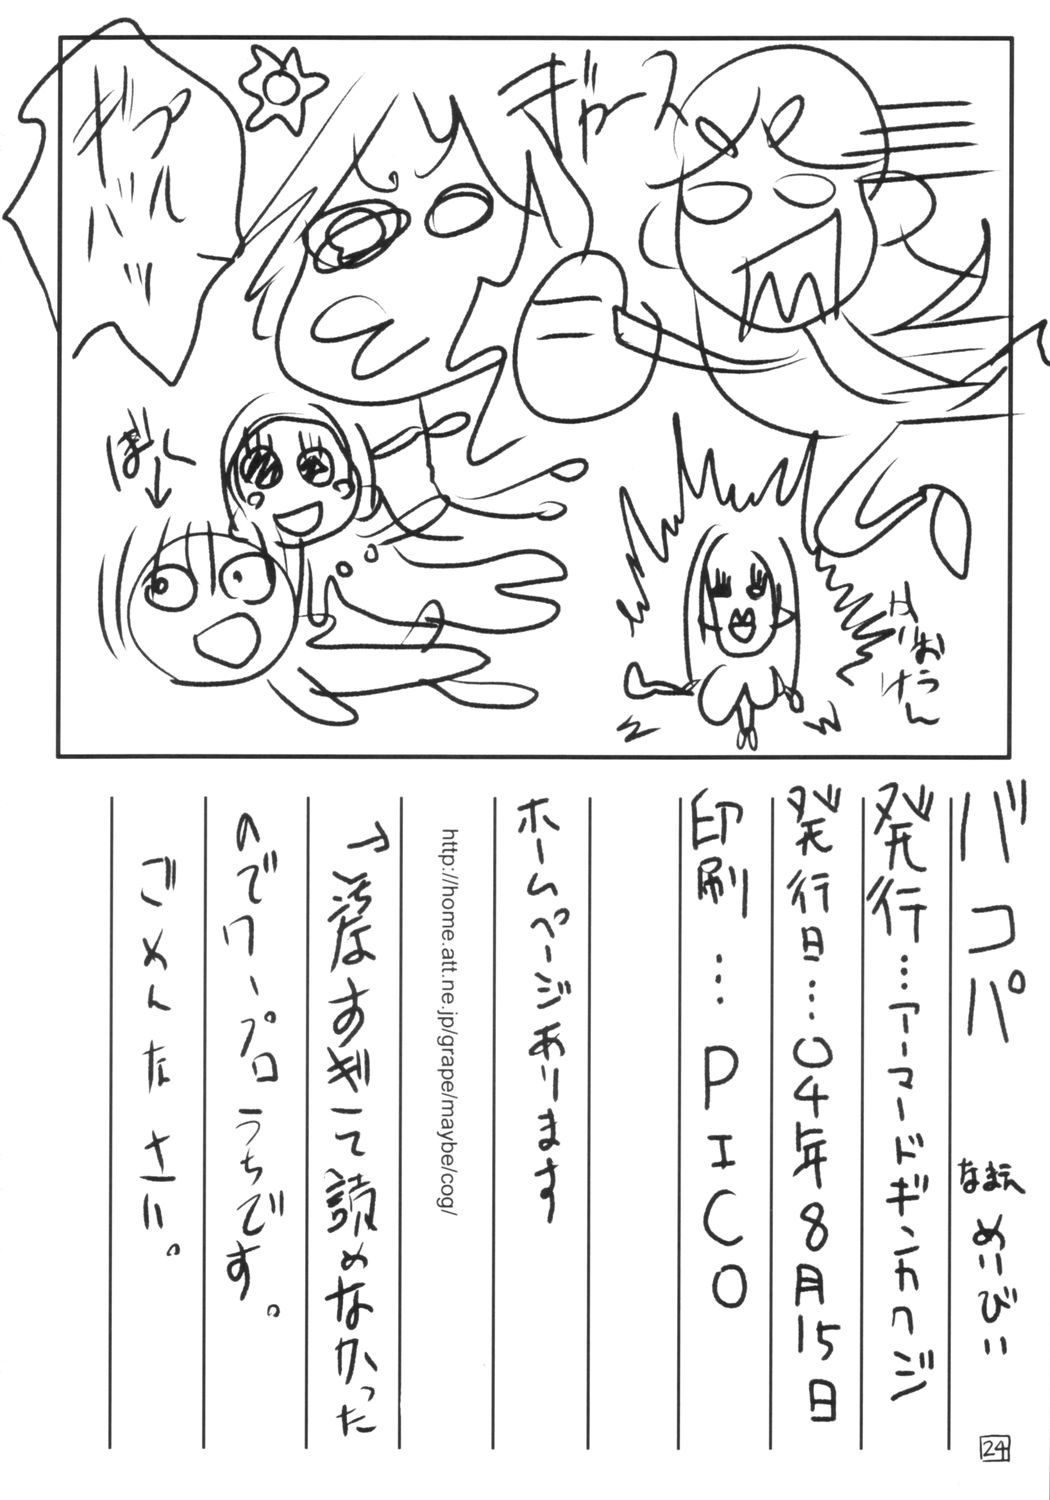 ギャース
ぼーん
かいおうけん
バコパ なまえ めいびい
発行…アーマードギンカクジ
発行日…04年8月15日
印刷…PICO
ホームページあります
http://home.att.ne.jp/grape/maybe/cog/
↑汚なすぎて読めなかった
のでワープロうちです。
ごめんなさい。
24